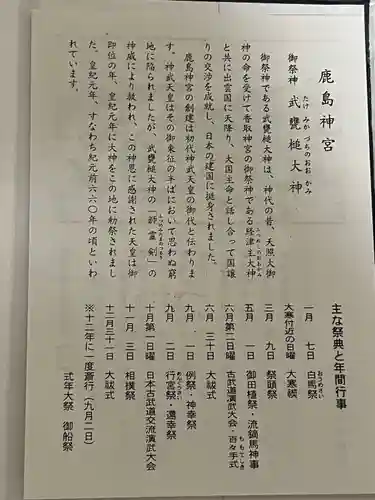 鹿島神宮
御祭神 武甕槌大神
たけ みか づちのおお かみ
御祭神である武甕槌大神は、神代の昔、天照大御
神の命を受けて香取神宮の御祭神である経津主大神
ふつぬしのおおかみ
と共に出雲国に天降り、大国主命と話し合って国譲
りの交渉を成就し、日本の建国に挺身されました。
鹿島神宮の創建は初代神武天皇の御代と伝わりま
す。神武天皇はその御東征の半ばにおいて思わぬ窮
地に陥られましたが、武甕槌大神の「韴霊剣」の
ふつのみたまのつるぎ
神威により救われ、この神恩に感謝された天皇は御
即位の年、皇紀元年に大神をこの地に勅祭されまし
た。皇紀元年、すなわち紀元前六六〇年の頃といわ
れています。
主な祭典と年間行事
一月 七日 白馬祭
おうめさい
大寒付近の日曜 大寒禊
三月 九日 祭頭祭
五月 一日 御田植祭・流鏑馬神事
六月第二日曜 古武道演武大会・百々手式
ももてしき
六月 三十日 大祓式
九月 一日 例祭・神幸祭
九月 二日 行宮祭・還幸祭
あんぐうさい
十月第一日曜 日本古武道交流演武大会
十一月 三日 相撲祭
十二月三十一日 大祓式
※十二年に一度斎行（九月二日）
式年大祭 御船祭